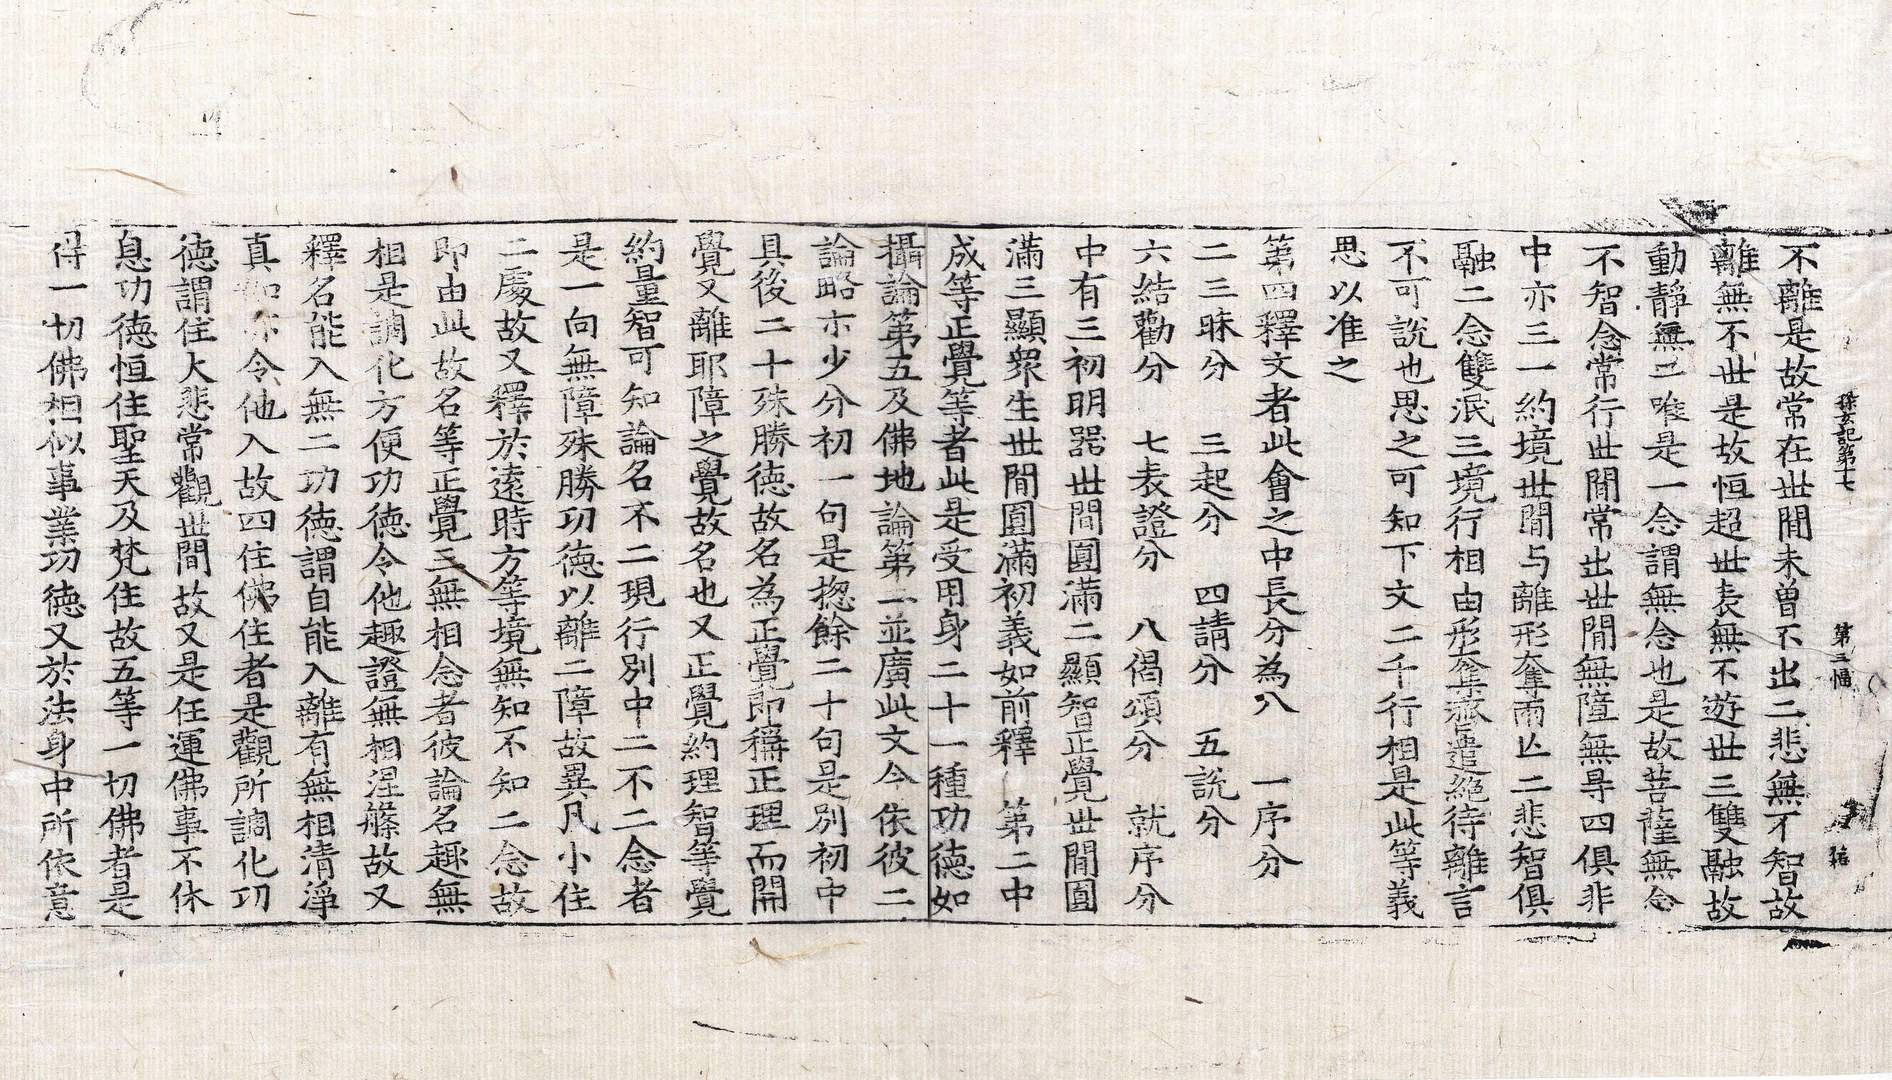 探玄記第十七　第三幅
不離是故常在世間未曾不出二悲無不智故
離無不世是故恒超世表無不遊世三雙融故
動靜無二唯是一念謂無念也是故菩薩無念
不智念常行世間常出世間無障無㝵四俱非
中亦三一約境世間与離形奪兩亡二悲智俱
融二念雙泯三境行相由形奪齊遣絶待離言
不可說也思之可知下文二千行相是此等義
思以准之
第四釋文者此會之中長分為八　一序分
二三昧分　三起分　四請分　五說分
六結勸分　七表證分　八偈頌分　就序分
中有三初明器世間圓滿二顯智正覺世間圓
滿三顯衆生世間圓滿初義如前釋　第二中
成等正覺等者此是受用身二十一種功德如
攝論第五及佛地論第二並廣此文今依彼二
論略亦少分初一句是揔餘二十句是別初中
具後二十殊勝德故名為正覺即稱正理而開
覺又離耶障之覺故名也又正覺約理智等覺
約量智可知論名不二現行別中二不二念者
是一向無障殊勝功德以離二障故異凡小住
二處故又釋於遠時方等境無知不知二念故
即由此故名等正覺三無相念者彼論名趣無
相是調化方便功德令他趣證無相涅槃故又
釋名能入無二功德謂自能入離有無相清淨
真如亦令他入故四住佛住者是觀所調化功
德謂住大悲常觀世間故又是任運佛事不休
息功德恒住聖天及梵住故五等一切佛者是
得一切佛相似事業功德又於法身中所依意